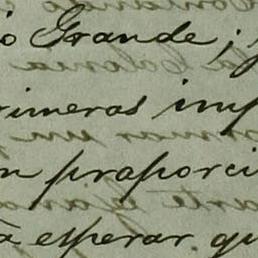 o Grande;
rimeras imp
n proporci
a esperar qu